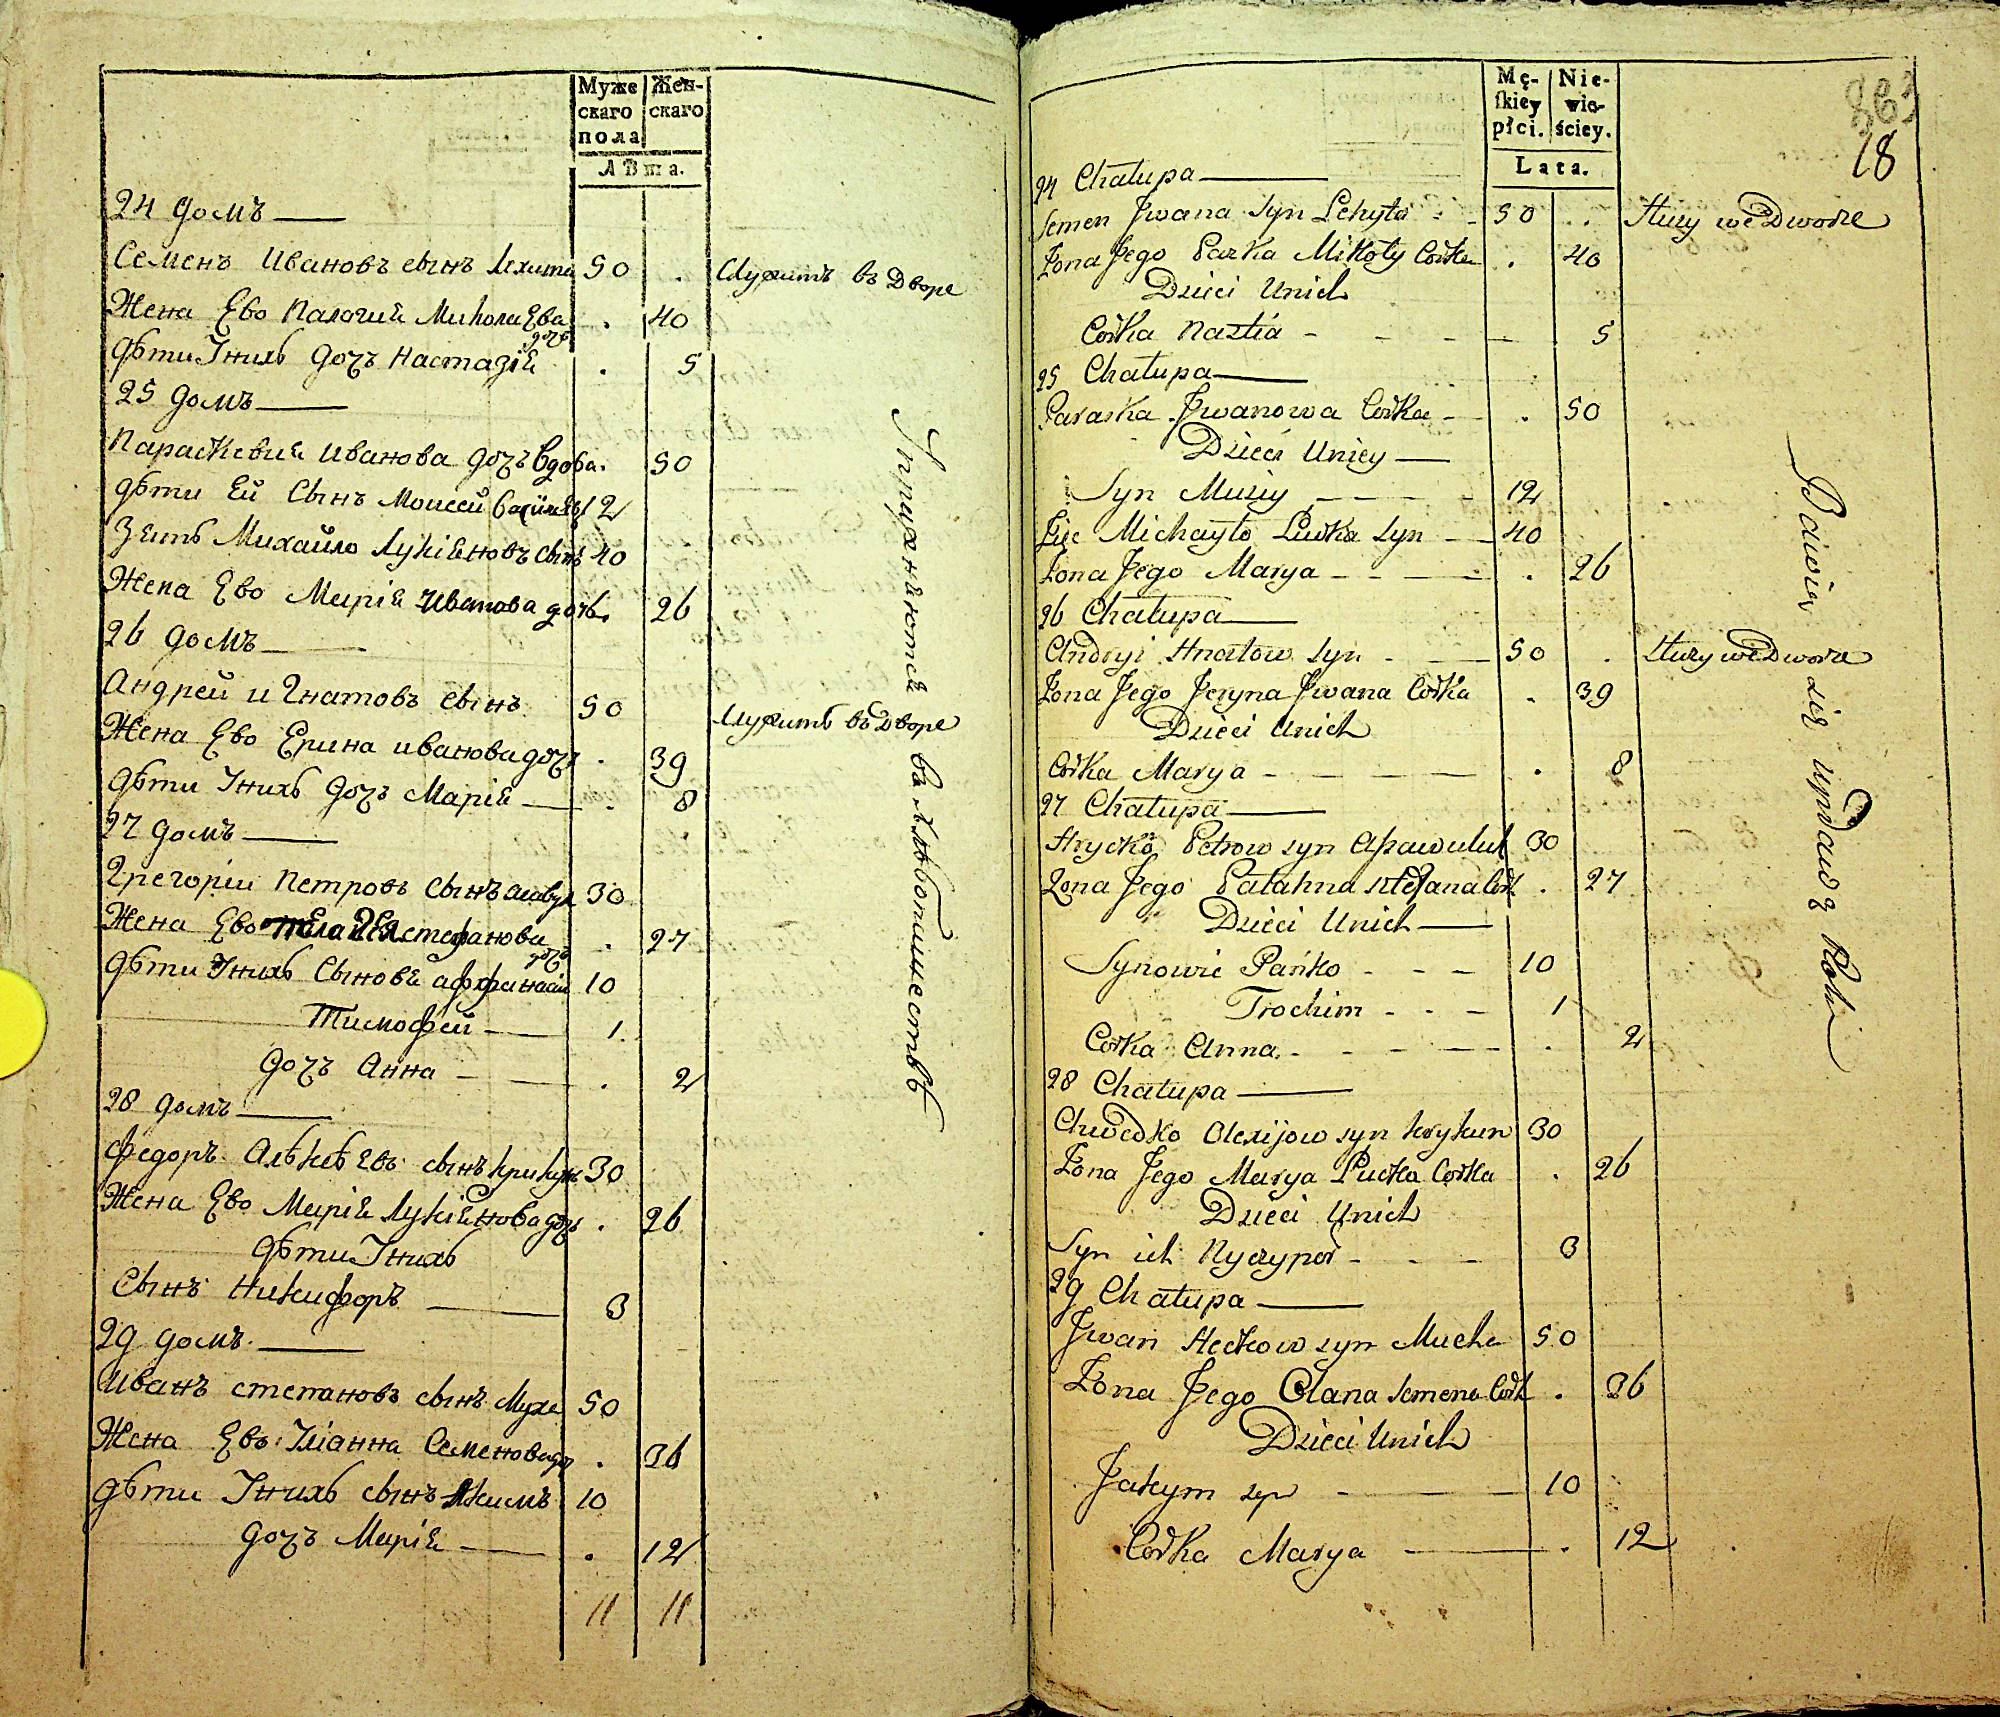 Муже
скаго
пола
Жен-
скаго
Лѣта.
24 домъ
Семенъ Ивановъ сынъ Лехита 50 . Служитъ въ Дворе
Жена Ево Палагия Миколаева дочь . 40
Дѣти Їнихъ дочь Настазія . 5
25 домъ
Параскевия Иванова дочь вдова . 50
Дѣти Ей Сынъ Моисей 12
Зять Михайло Лукіяновъ сынъ 40
Жена Ево Марія Иванова дочь . 26
26 домъ
Андрей Игнатовъ сынъ 50 Служитъ въ Дворе
Жена Ево Ерина Иванова дочь . 39
Дѣти Їнихъ дочь Марія . 8
27 домъ
Григоріи Петровъ сынъ 30
Жена Ево Стефанова дочь . 27
Дѣти Їнихъ Сынове Аффанасіи 10
Тимофей 1
дочь Анна . 2
28 домъ
Федоръ Алексѣевъ сынъ Крикунъ 30
Жена Ево Марія Лукіянова дочь . 26
Дѣти Їнихъ
Сынъ Никифоръ 3
29 домъ
Иванъ Степановъ сынъ Муха 50
Жена Ево Їліанна Семенова дочь . 36
Дѣти Їнихъ сынъ Якимъ 10
дочь Марія . 12
11 11
Упражняются въ хлѣбопашествѣ
Mę-
skiey
płci.
Nie-
wie-
ściey.
Lata.
18
24 Chałupa
Semen Jwana syn Lehyta 50 . Służy we Dworze
Żona Jego Paźka Mikoły Corka . 40
Dzieci Unich
Corka Nastia 5
25 Chałupa
Paraska Jwanowa Corka . 50
Dzieci Uniey
Syn Musiy 12
Zięc Michayło Lucka syn 40
Żona Jego Marya . 26
26 Chałupa
Andryi Hnatow syn 50 . Służy we Dworze
Żona Jego Jeryna Jwana Corka . 39
Dzieci Unich
Corka Marya . 8
27 Chałupa
Hryćko Petrow syn 30
Żona Jego Pałahna Stefana Cork . 27
Dzieci Unich
Synowie Pańko 10
Trochim 1
Corka Anna . 2
28 Chałupa
Chwedko Olexijow syn Krykun 30
Żona Jego Marya Lucka Corka . 26
Dzieci Unich
Syn ich Nyczypor 3
29 Chałupa
Jwan Steckow syn Mucha 50
Żona Jego Olana Semena Cork . 36
Dzieci Unich
Jakym syn 10
Corka Marya . 12
Bawią się uprawą Roli